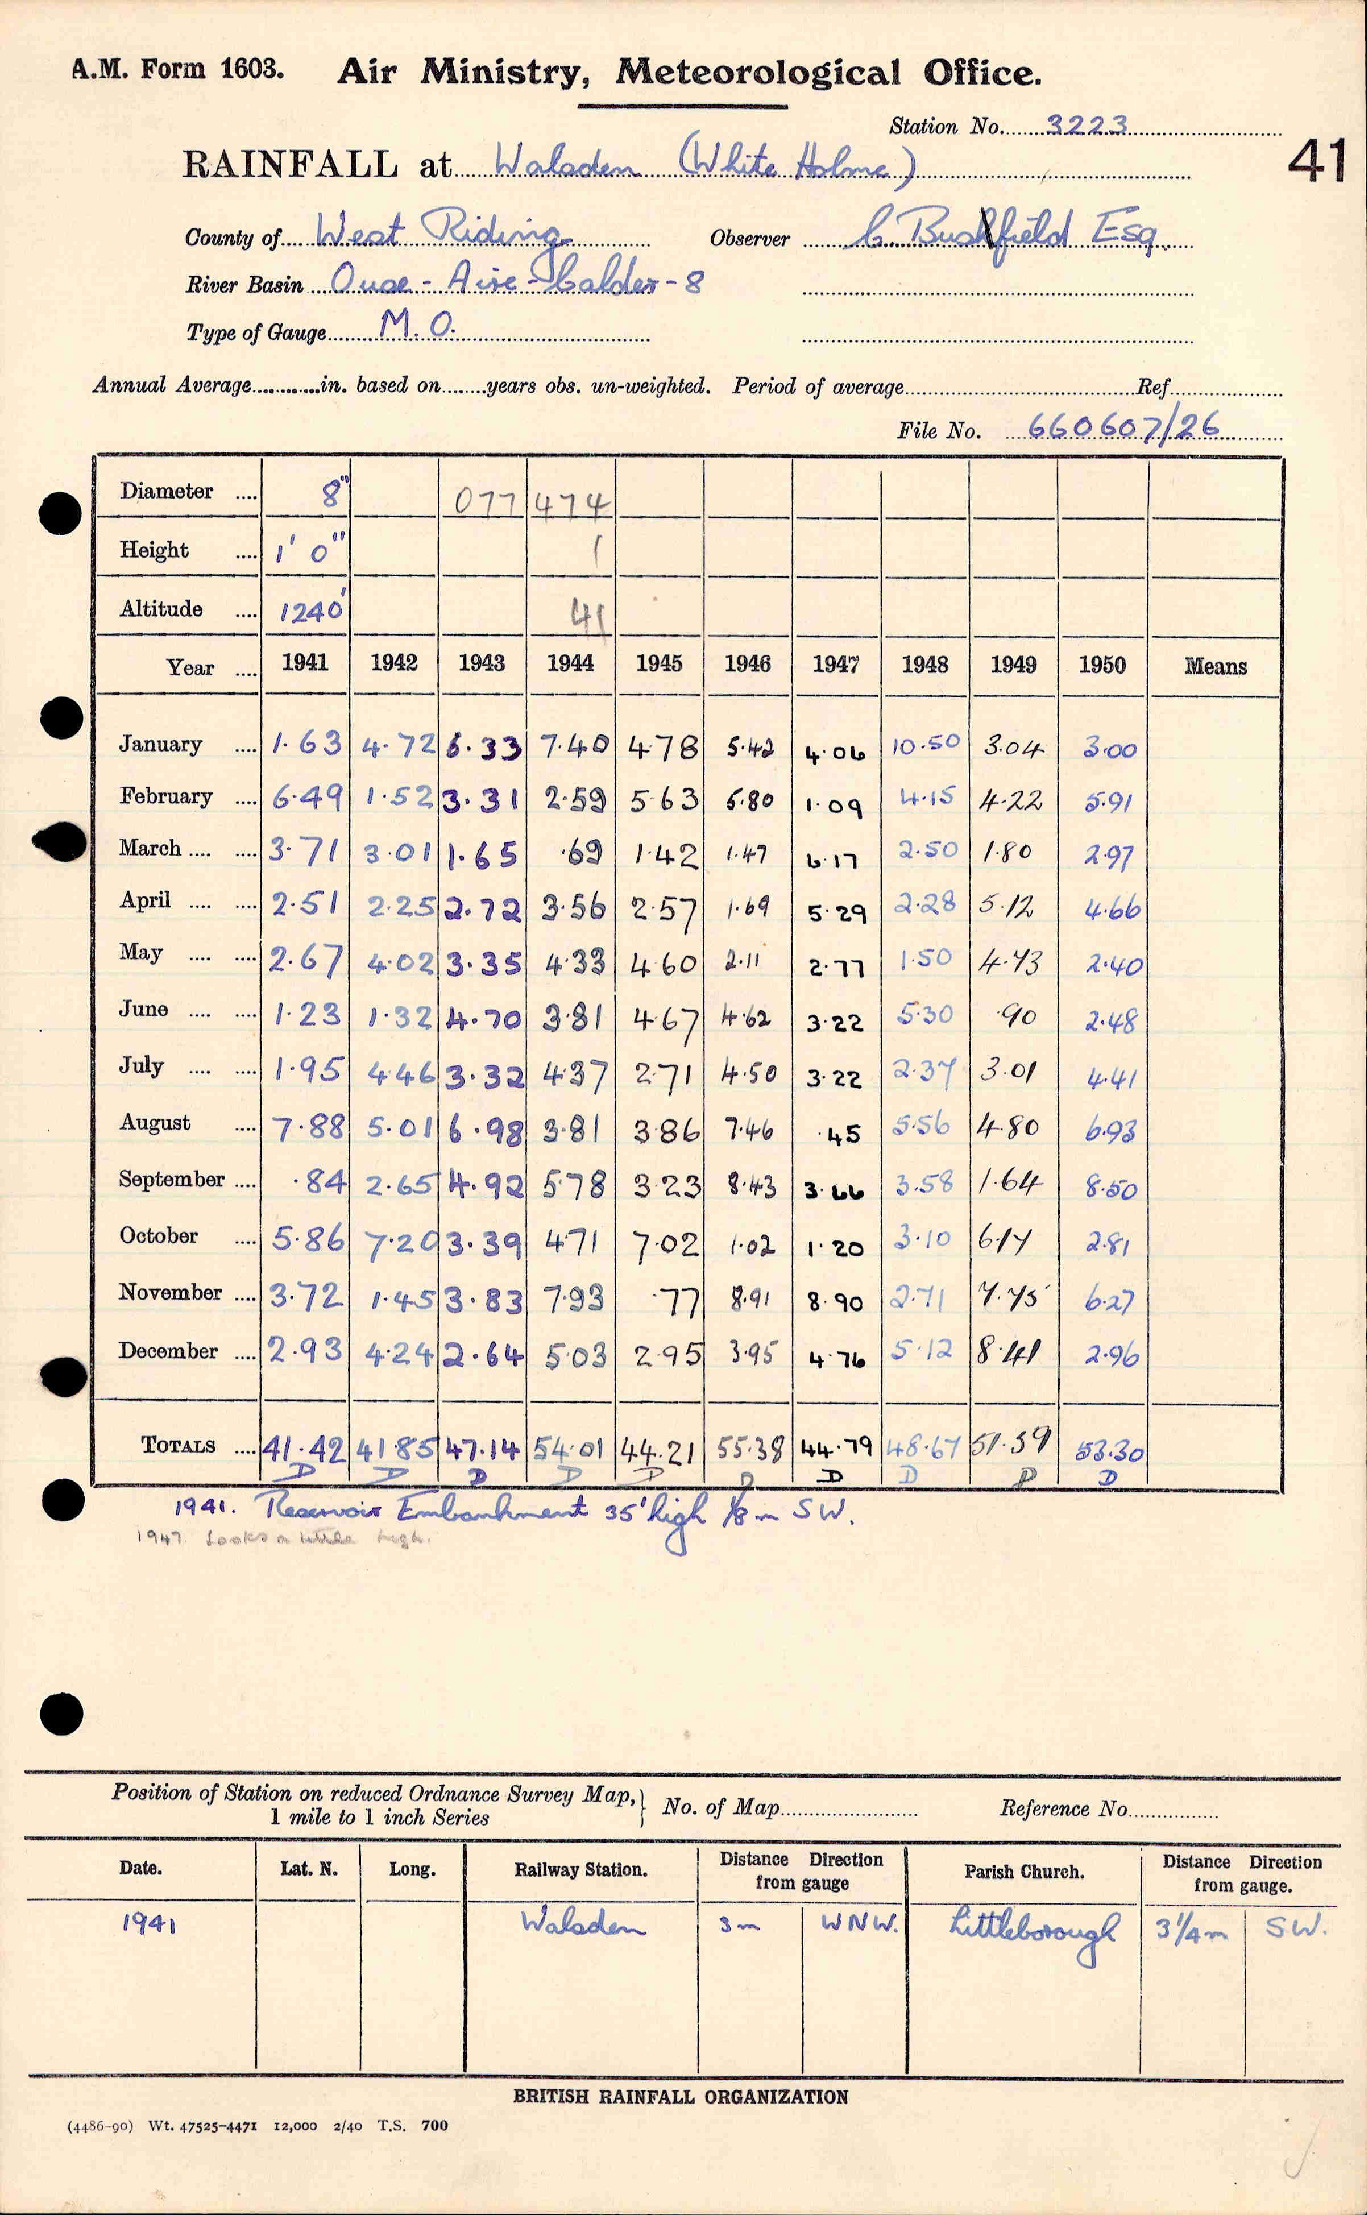 A.M. Form 1603. Air Ministry, Meteorological Office.
Station No. 3223
41
RAINFALL at Walsden (White Holme)
County of West Riding Observer C. Bushfield Esq.
River Basin Ouse - Aire - Calder - 8
Type of Gauge M.O.
Annual Average in. based on years obs. un-weighted. Period of average Ref
File No. 660607/26
Diameter 8" 077 474
Height 1' 0" 1
Altitude 1240' 41
Year 1941 1942 1943 1944 1945 1946 1947 1948 1949 1950 Means
January 1.63 4.72 6.33 7.40 4.78 5.42 4.06 10.50 3.04 3.00
February 6.49 1.52 3.31 2.59 5.63 5.80 1.09 4.15 4.22 5.91
March 3.71 3.01 1.65 .69 1.42 1.47 6.17 2.50 1.80 2.97
April 2.51 2.25 2.72 3.56 2.57 1.69 5.29 2.28 5.12 4.66
May 2.67 4.02 3.35 4.33 4.60 2.11 2.77 1.50 4.73 2.40
June 1.23 1.32 4.70 3.81 4.67 4.62 3.22 5.30 .90 2.48
July 1.95 4.46 3.32 4.37 2.71 4.50 3.22 2.37 3.01 4.41
August 7.88 5.01 6.98 3.81 3.86 7.46 .45 5.56 4.80 6.93
September .84 2.65 4.92 5.78 3.23 8.43 3.66 3.58 1.64 8.50
October 5.86 7.20 3.39 4.71 7.02 1.02 1.20 3.10 6.17 2.81
November 3.72 1.45 3.83 7.93 .77 8.91 8.90 2.71 7.75 6.27
December 2.93 4.24 2.64 5.03 2.95 3.95 4.76 5.12 8.41 2.96
TOTALS 41.42 41.85 47.14 54.01 44.21 55.38 44.79 48.67 51.59 53.30
D D D D D D D D D D
1941. Reservoir Embankment 35' high 1/8 m SW.
1947 Looks a little high.
Position of Station on reduced Ordnance Survey Map, 1 mile to 1 inch Series } No. of Map Reference No.
Date. Lat. N. Long. Railway Station. Distance Direction from gauge Parish Church. Distance Direction from gauge.
1941 Walsden 3m WNW. Littleborough 3 1/4 m SW.
BRITISH RAINFALL ORGANIZATION
(4486-90) Wt. 47525-4471 12,000 2/40 T.S. 700